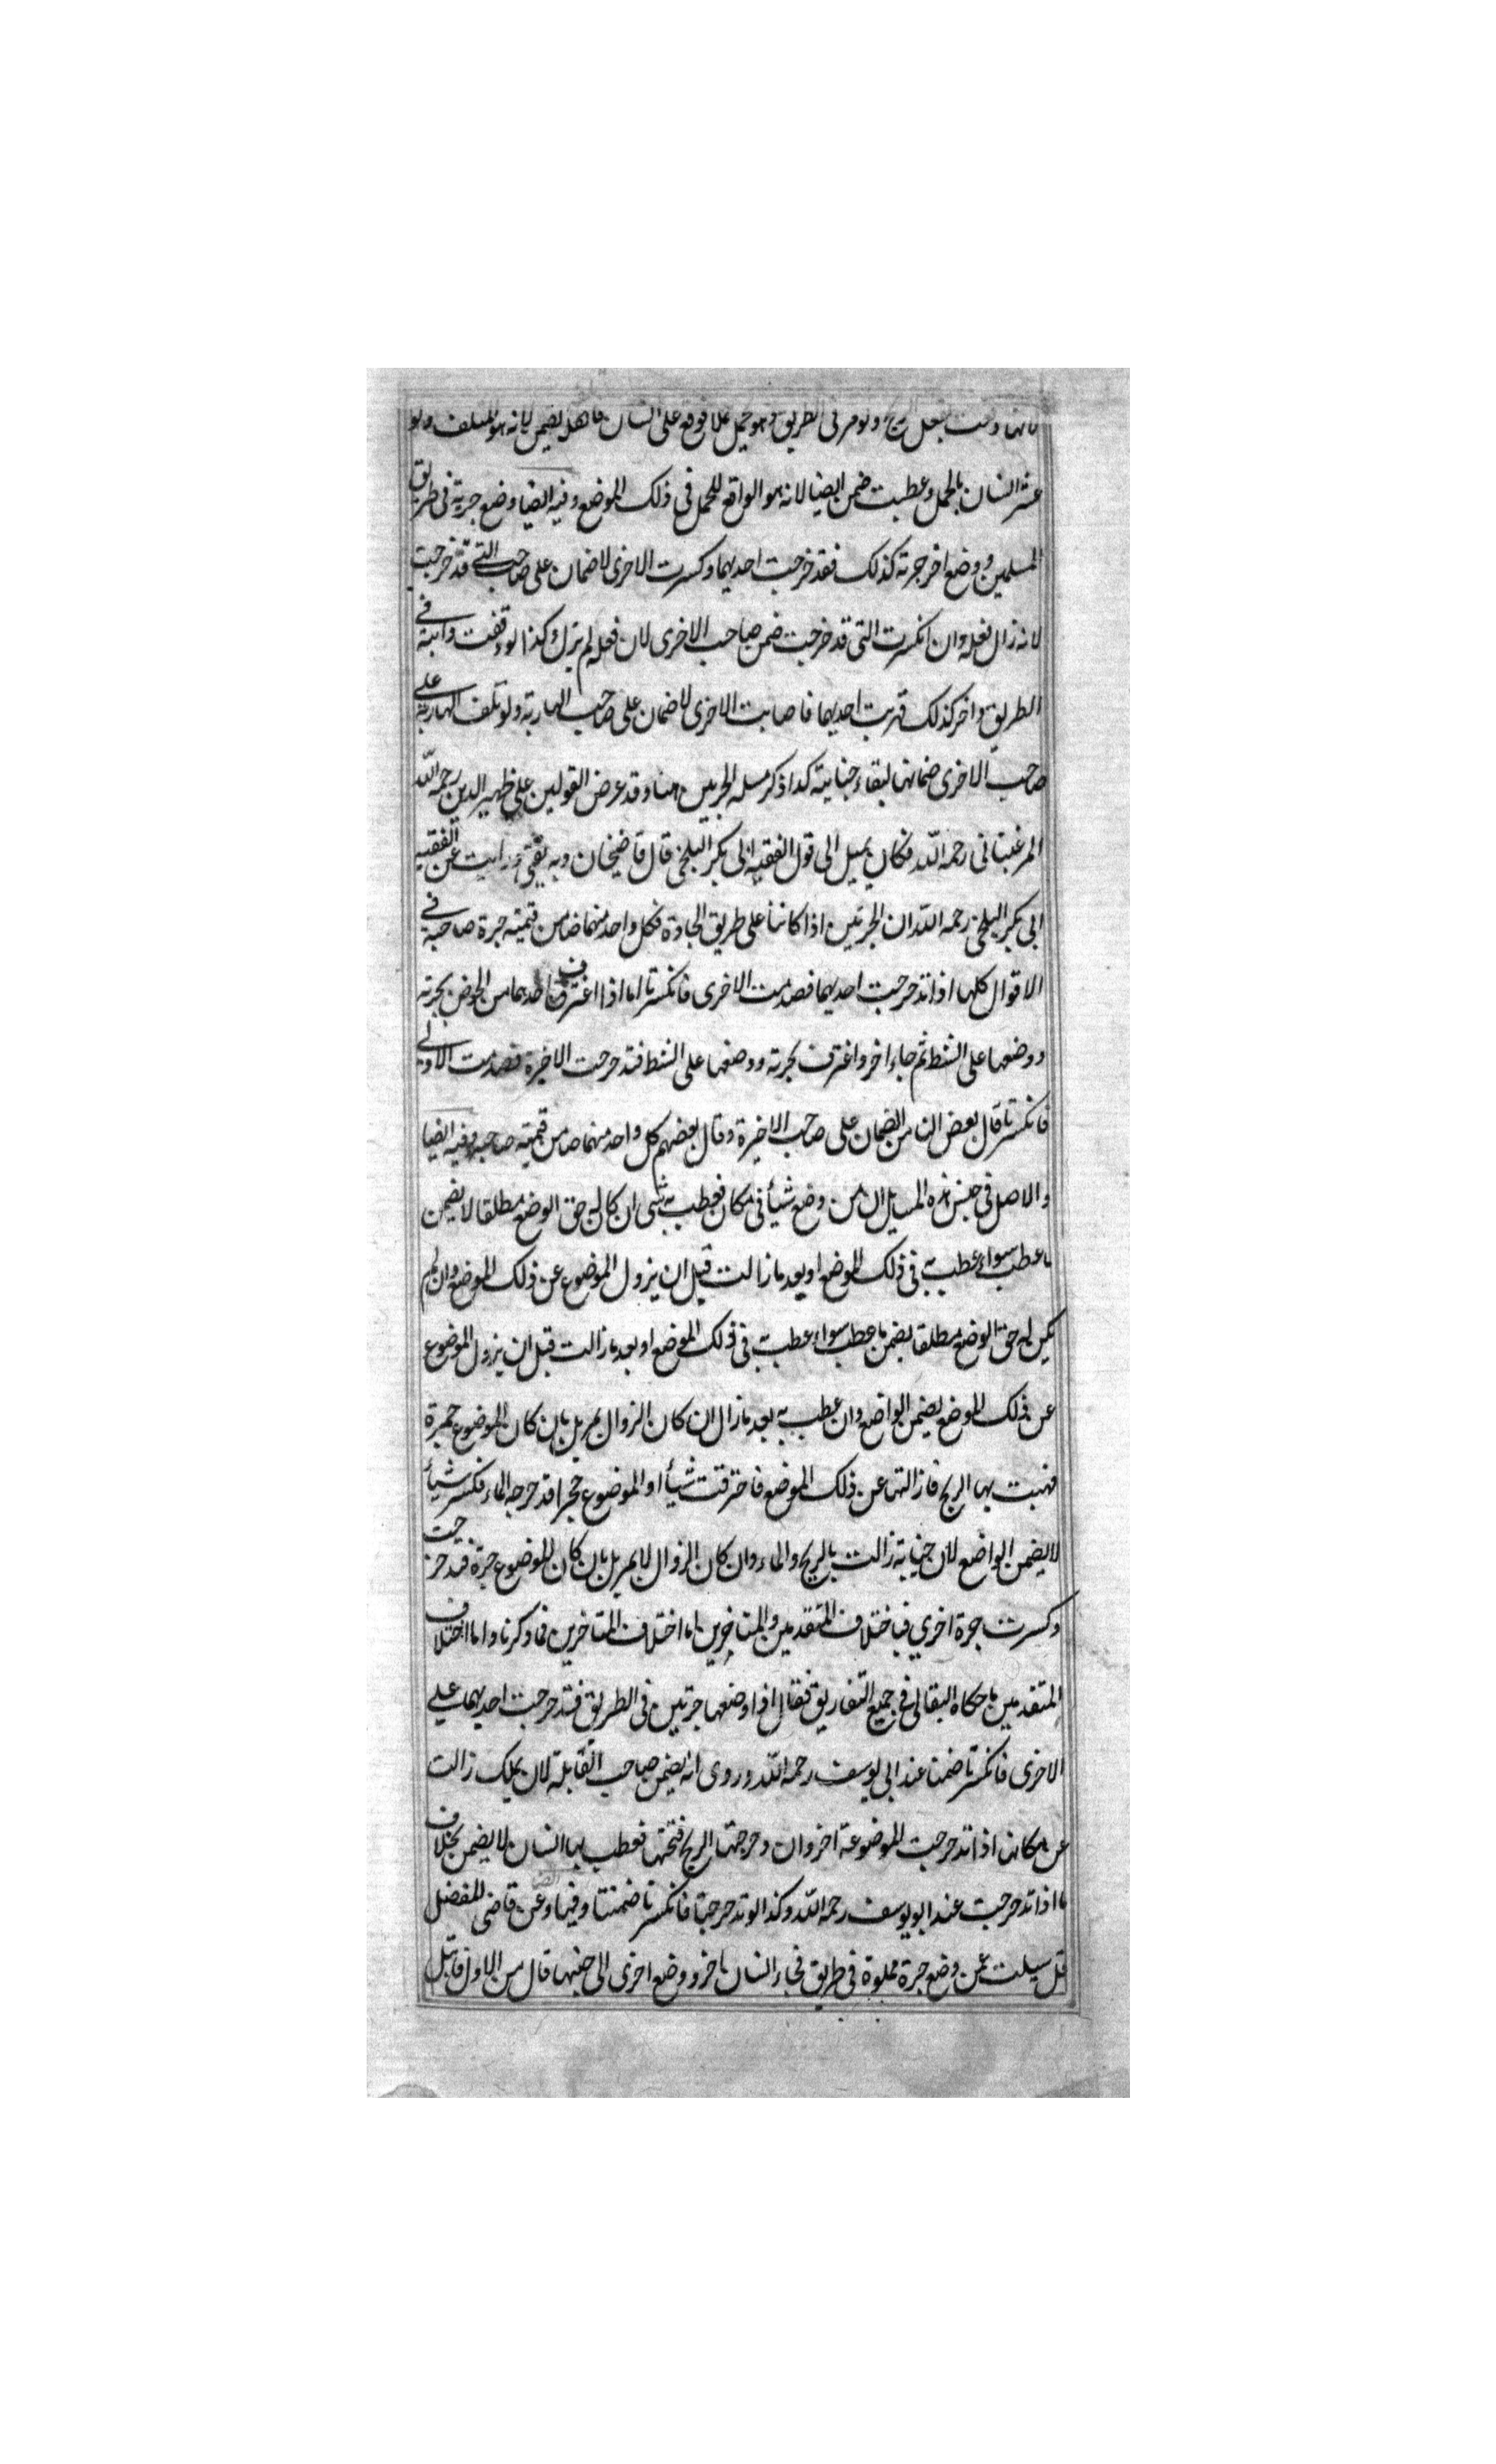 فانها وقعت بفعل الريح ولو مر في الطريق وهو حمل حملا فوقع على انسان فاهلك يضمن لانه هو المتلف ولو
عثر انسان بالحمل وعطبت ضمن ايضا لانه هو الواقع للحمل في ذلك الموضع وفيه ايضا وضع جرته في طريق
المسلمين ووضع اخر جرته كذلك فقد خرجت احديهما وكسرت الاخرى لا ضمان على صاحب التي قد خرجت
لانه زال فعله وان انكسرت التي قد خرجت ضمن صاحب الاخرى لان فعله لم يزل وكذا لو وقفت دابته في
الطريق واخر كذلك فهربت احديهما فاصابت الاخرى لا ضمان على صاحب الهاربة ولو تلف الهاربة على
صاحب الاخرى ضمانها لبقاء جنايته كذا ذكر مسله الجرتين هنا وقد عرض القولين على ظهير الدين رحمه الله
المرغيناني رحمه الله فكان يميل الى قول الفقيه ابي بكر البلخي قال قاضيخان وبه يفتى ورايت عن الفقيه
ابي بكر البلخي رحمه الله ان الجرتين اذا كانتا على طريق الجادة فكل واحد منهما ضامن قيمته جرة صاحبه في
الاقوال كلها اذا تدحرجت احديهما فصدمت الاخرى فانكسرتا اما اذا اغترف احدهما من الحوض بجرته
ووضعها على الشط ثم جاء اخر واغترف بجرته ووضعها على الشط فتدحرجت الاخيرة فصدمت الاولى
فانكسرتا قال بعض الناس الضمان على صاحب الاخيرة وقال بعضهم كل واحد منهما ضامن قيمته صاحبه وفيه ايضا
والاصل في جنس هذه المسايل ان من وضع شيأ في مكان فعطب به شى ان كان له حق الوضع مطلقا لا يضمن
ما عطب سواء عطب به في ذلك الموضع او بعد ما زالت قبل ان يزول الموضوع عن ذلك الموضع وان لم
يكن له حق الوضع مطلقا يضمن ما عطب سواء عطبت في ذلك الموضع او بعد ما زالت قبل ان يزول الموضوع
عن ذلك الموضع يضمن الواضع وان عطب به بعد ما زال ان كان الزوال بمزيل بان كان الموضوع جمرة
فهبت بها الريح فازالتها عن ذلك الموضع فاحترقت شيأ او الموضوع حجرا قد حرجه الماء فكسر شيأ
لا يضمن الواضع لان جنايته زالت بالريح والماء وان كان الزوال لا بمزيل بان كان الموضوع جرة فتدحرجت
وكسرت جرة اخرى فباختلاف المتقدمين والمتاخرين اما اختلاف المتاخرين فما ذكرنا واما اختلاف
المتقدمين ما حكاه البقالي في جميع التفاريق فقال اذا وضعها جرتين في الطريق فتدحرجت احديهما على
الاخرى فانكسرتا ضمنا عند ابي يوسف رحمه الله وروى انه يضمن صاحب القابلة لان بملك زالت
عن مكانها اذا تدحرجت الموضوعة اخر وان دحرجتها الريح فتحتها فعطب بها انسان لا يضمن بخلاف
ما اذا تدحرجت عند ابو يوسف رحمه الله وكذا لو تدحرجتا فانكسرتا ضمنتا وفيها وعن قاضى للفضل
قل سيلت عمن وضع جرة مملوة في طريق فجاء انسان باخر ووضع اخرى الى جنبها قال من الاول قابتل